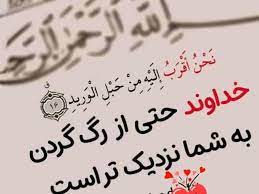 بسم الله الرحمن الرحيم
نَحْنُ أَقْرَبُ إِلَيْهِ مِنْ حَبْلِ الْوَرِيدِ ۝١٦
خداوند حتی از رگ گردن
به شما نزدیک تر است